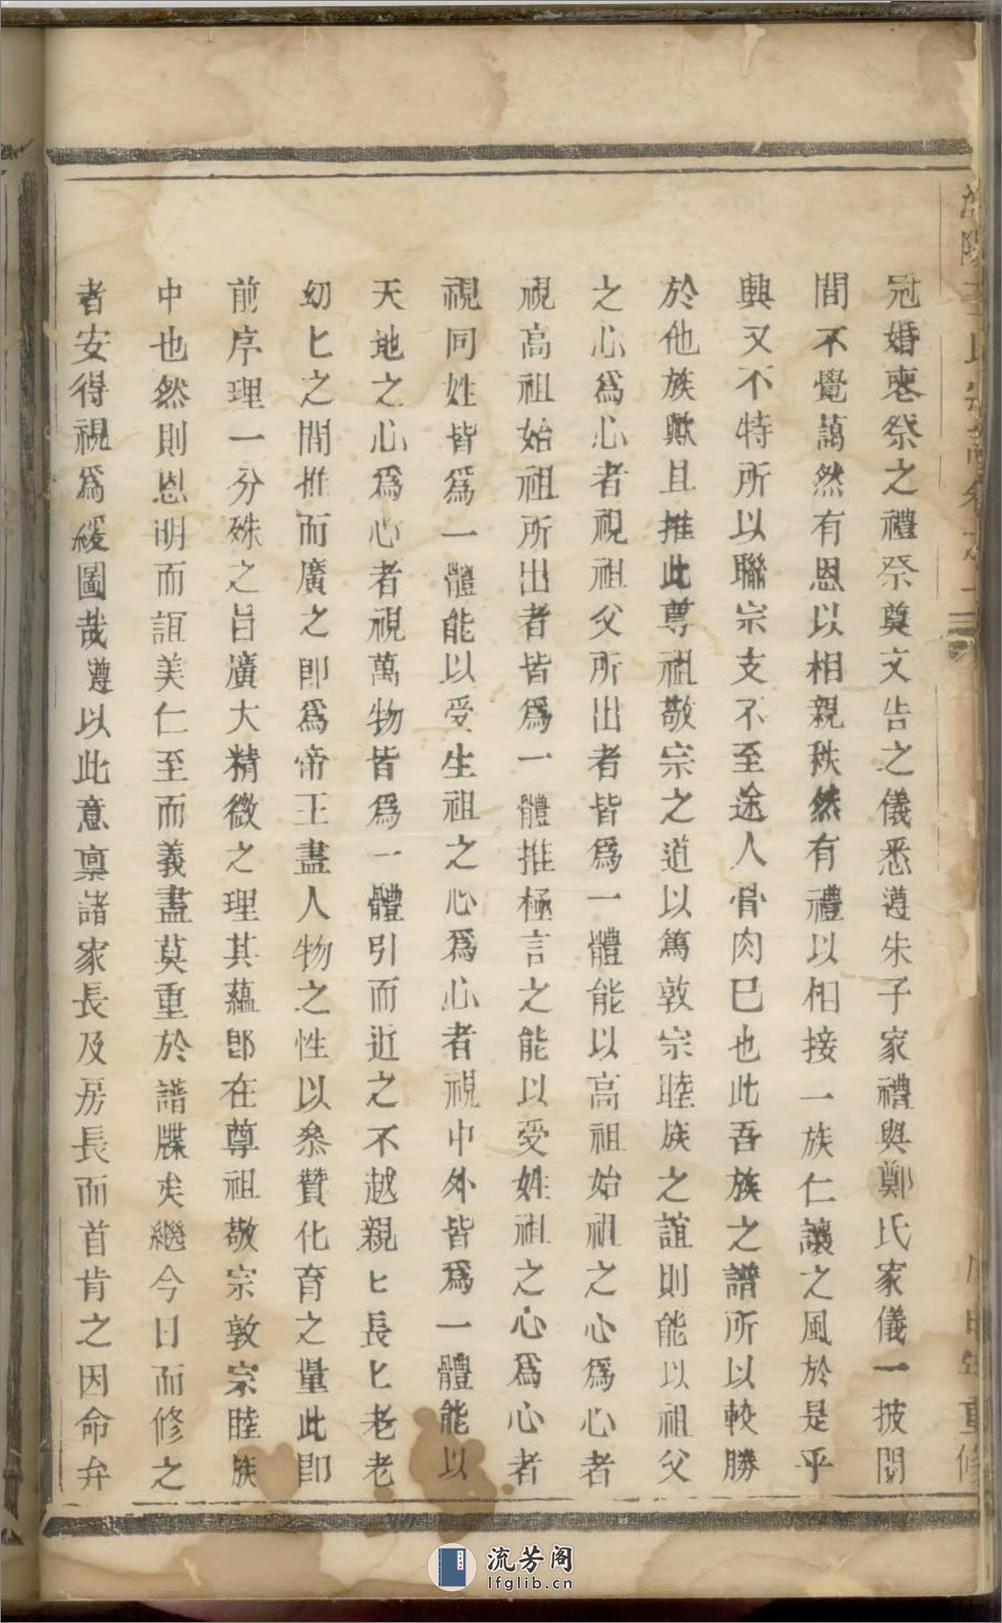 冠婚䘮祭之禮祭奠文告之儀悉遵朱子家禮與鄭氏家儀一披閱
間不覺藹然有恩以相親秩然有禮以相接一族仁讓之風於是乎
興又不特所以聯宗支不至途人骨肉巳也此吾族之譜所以較勝
於他族歟且推此尊祖敬宗之道以篤敦宗睦族之誼則能以祖父
之心爲心者視祖父所出者皆爲一體能以高祖始祖之心爲心者
視高祖始祖所出者皆爲一體推極言之能以受姓祖之心爲心者
視同姓皆爲一體能以受生祖之心爲心者視中外皆爲一體能以
天地之心爲心者視萬物皆爲一體引而近之不越親匕長匕老老
幼匕之間推而廣之卽爲帝王盡人物之性以叅贊化育之量此卽
前序理一分殊之旨廣大精微之理其蘊卽在尊祖敬宗敦宗睦族
中也然則恩明而誼美仁至而義盡莫重於譜牒矣繼今日而修之
者安得視爲緩圖哉遵以此意禀諸家長及房長而首肯之因命弁
氏宗譜卷之
年重修
流芳阁
lfglib.cn